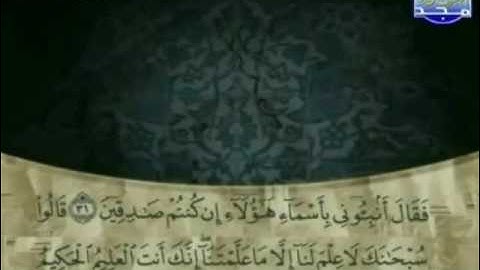 المجد
فَقَالَ أَنۢبِـُٔونِى بِأَسْمَآءِ هَـٰٓؤُلَآءِ إِن كُنتُمْ صَـٰدِقِينَ ٣١ قَالُوا۟
سُبْحَـٰنَكَ لَا عِلْمَ لَنَآ إِلَّا مَا عَلَّمْتَنَآ إِنَّكَ أَنتَ ٱلْعَلِيمُ ٱلْحَكِيمُ